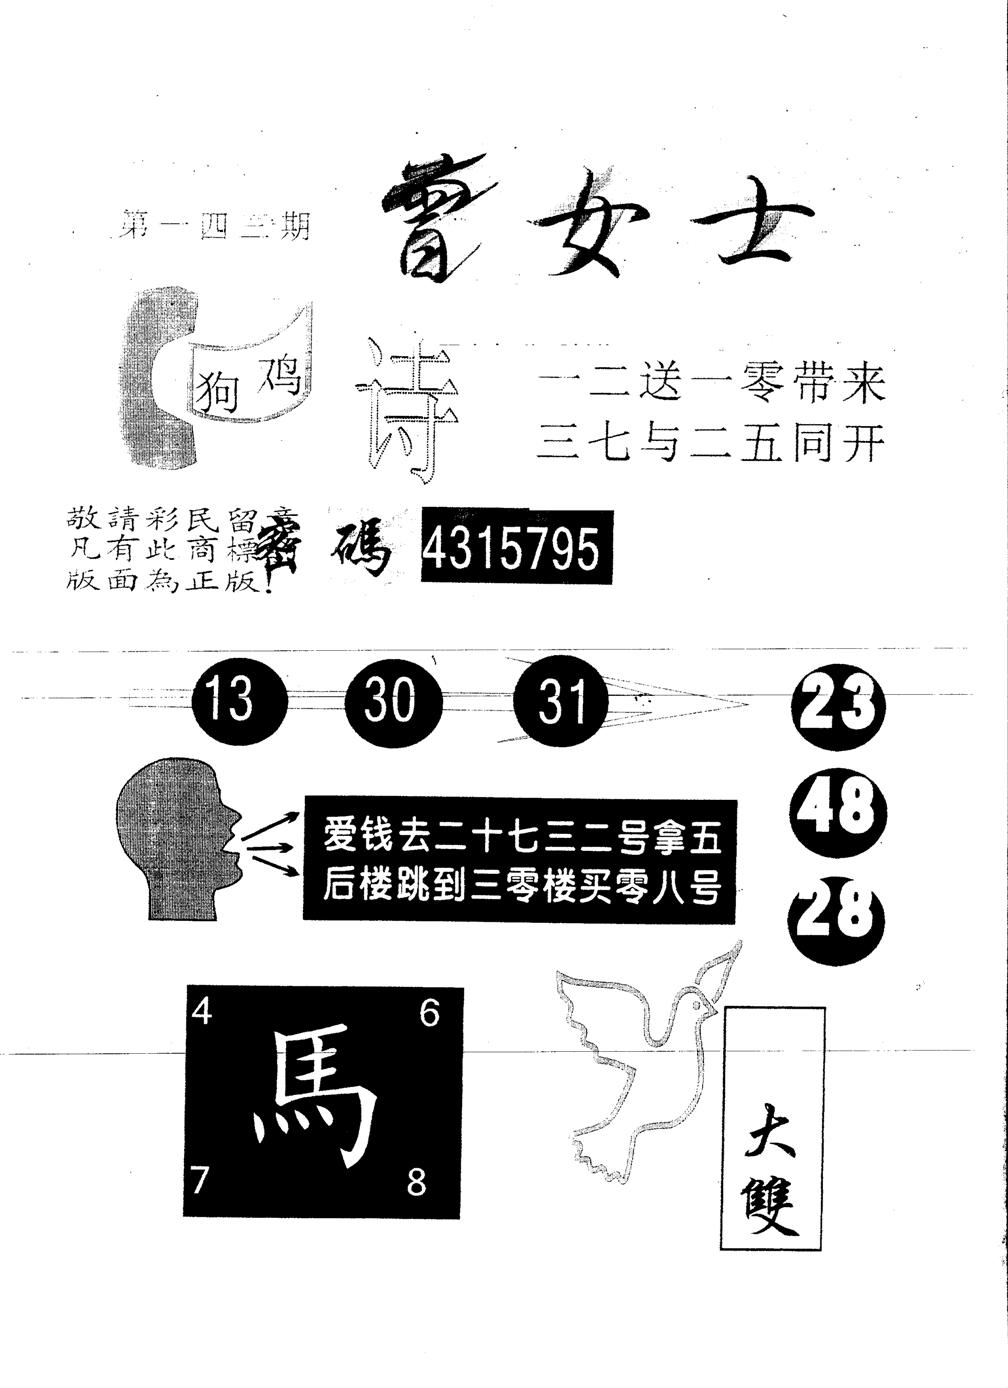 曾女士
第一四三期
狗 鸡
诗
一二送一零带来
三七与二五同开
敬請彩民留意
凡有此商標
版面為正版!
密碼
4315795
13 30 31
23
48
28
爱钱去二十七三二号拿五
后楼跳到三零楼买零八号
4 6
馬
7 8
大
雙